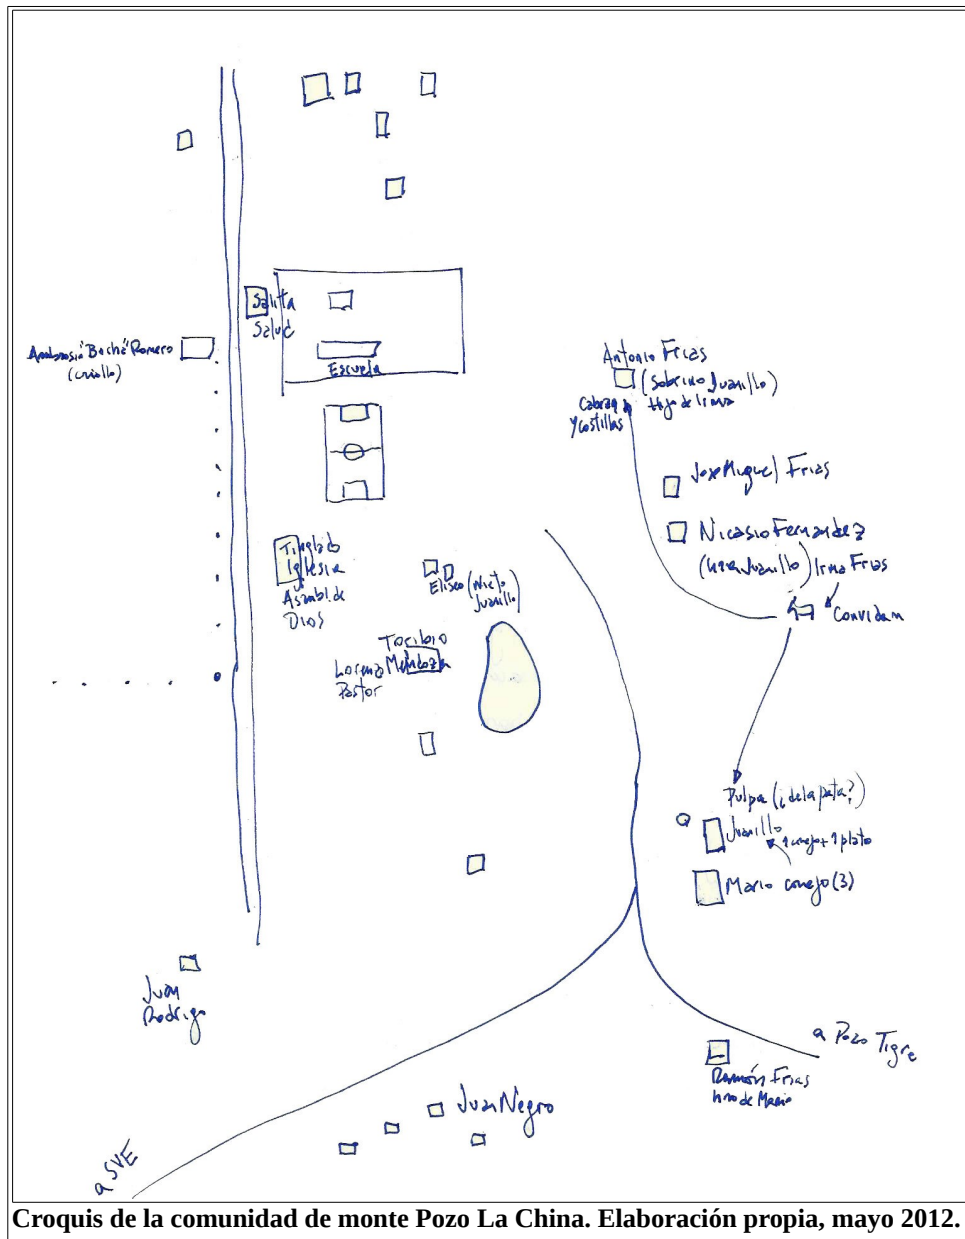 Salita
Salud
Escuela
Ambrosio "Bachá" Romero
(criollo)
Antonio Frias
(Sobrino Juanillo)
Hijo de Irma
Cabeza
y costillas
Jose Miguel Frias
Nicasio Fernandez
(hno Juanillo) Irma Frias
Convidan
Tinglado
Iglesia
Asambl. de
Dios
Eliseo (Nieto
Juanillo)
Toribio
Mendoza
Lorenzo
Pastor
Pulpa (¿de la pata?)
Juanillo
1 conejo + 1 plato
Mario conejo (3)
Juan
Rodrigo
a Pozo Tigre
Ramón Frias
hno de Mario
Juan Negro
a SVE
Croquis de la comunidad de monte Pozo La China. Elaboración propia, mayo 2012.